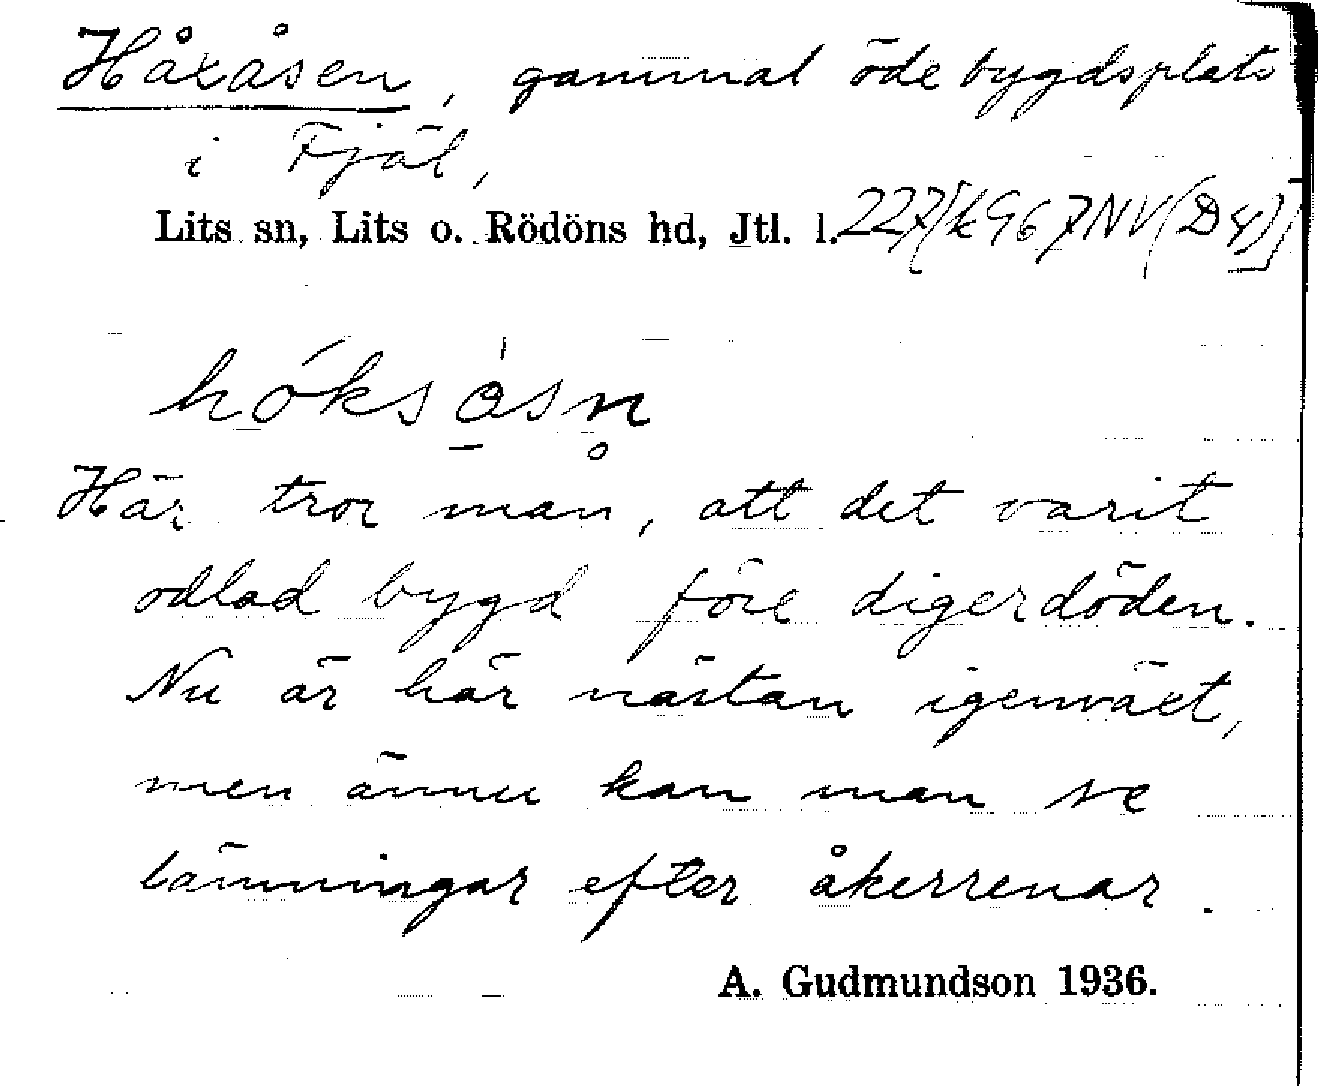 Håxåsen, gammal öde bygdsplats
i Fjäl,
Lits sn, Lits o. Rödöns hd, Jtl. l. 227/[k967NV(D4)]
hóksåsn̥
Här tror man, att det varit
odlad bygd före digerdöden.
Nu är här nästan igenväxt,
men ännu kan man se
lämningar efter åkerrenar.
A. Gudmundson 1936.